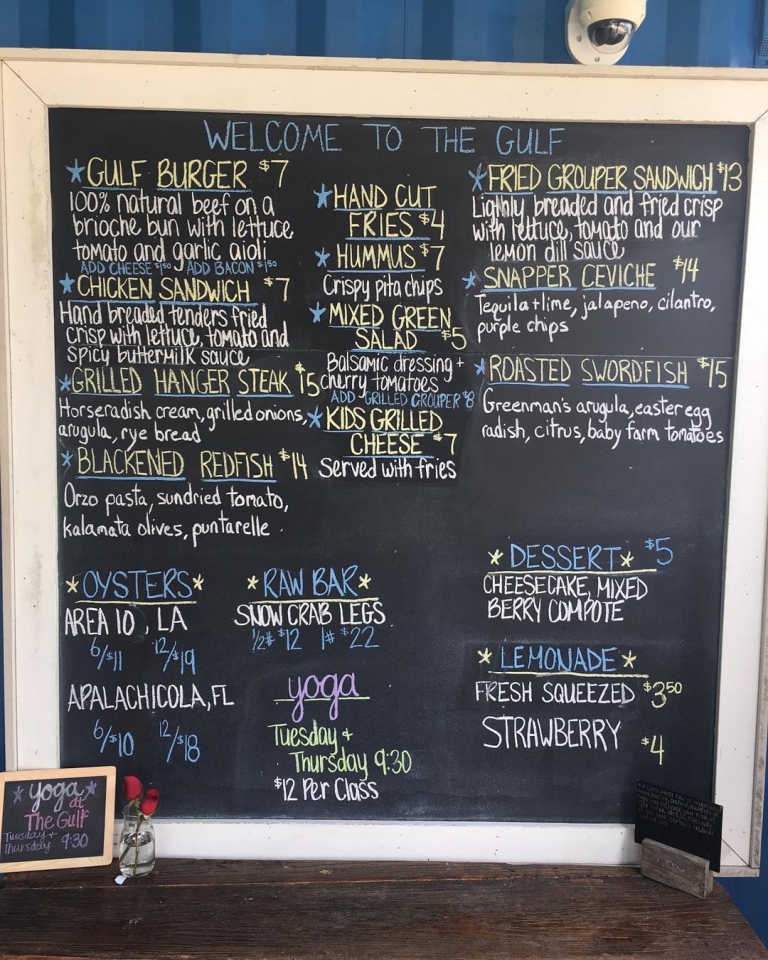 WELCOME TO THE GULF
GULF BURGER $7
100% natural beef on a
brioche bun with lettuce
tomato and garlic aioli
ADD CHEESE $1.50 ADD BACON $1.50
CHICKEN SANDWICH $7
Hand breaded tenders fried
crisp with lettuce, tomato and
spicy buttermilk sauce
GRILLED HANGER STEAK $15
Horseradish cream, grilled onions,
arugula, rye bread
BLACKENED REDFISH $14
Orzo pasta, sundried tomato,
kalamata olives, puntarelle
HAND CUT
FRIES $4
HUMMUS $7
Crispy pita chips
MIXED GREEN
SALAD $5
Balsamic dressing +
cherry tomatoes
ADD GRILLED GROUPER $8
KIDS GRILLED
CHEESE $7
Served with fries
FRIED GROUPER SANDWICH $13
Lighly breaded and fried crisp
with lettuce, tomato and our
lemon dill sauce
SNAPPER CEVICHE $14
Tequila + lime, jalapeno, cilantro,
purple chips
ROASTED SWORDFISH $15
Greenman's arugula, easter egg
radish, citrus, baby farm tomatoes
OYSTERS
AREA 10, LA
6/$11 12/$19
APALACHICOLA, FL
6/$10 12/$18
RAW BAR
SNOW CRAB LEGS
1/2# $12 1# $22
yoga
Tuesday +
Thursday 9:30
$12 Per Class
DESSERT $5
CHEESECAKE, MIXED
BERRY COMPOTE
LEMONADE
FRESH SQUEEZED $3.50
STRAWBERRY $4
yoga
at
The Gulf
Tuesday +
Thursday 9:30